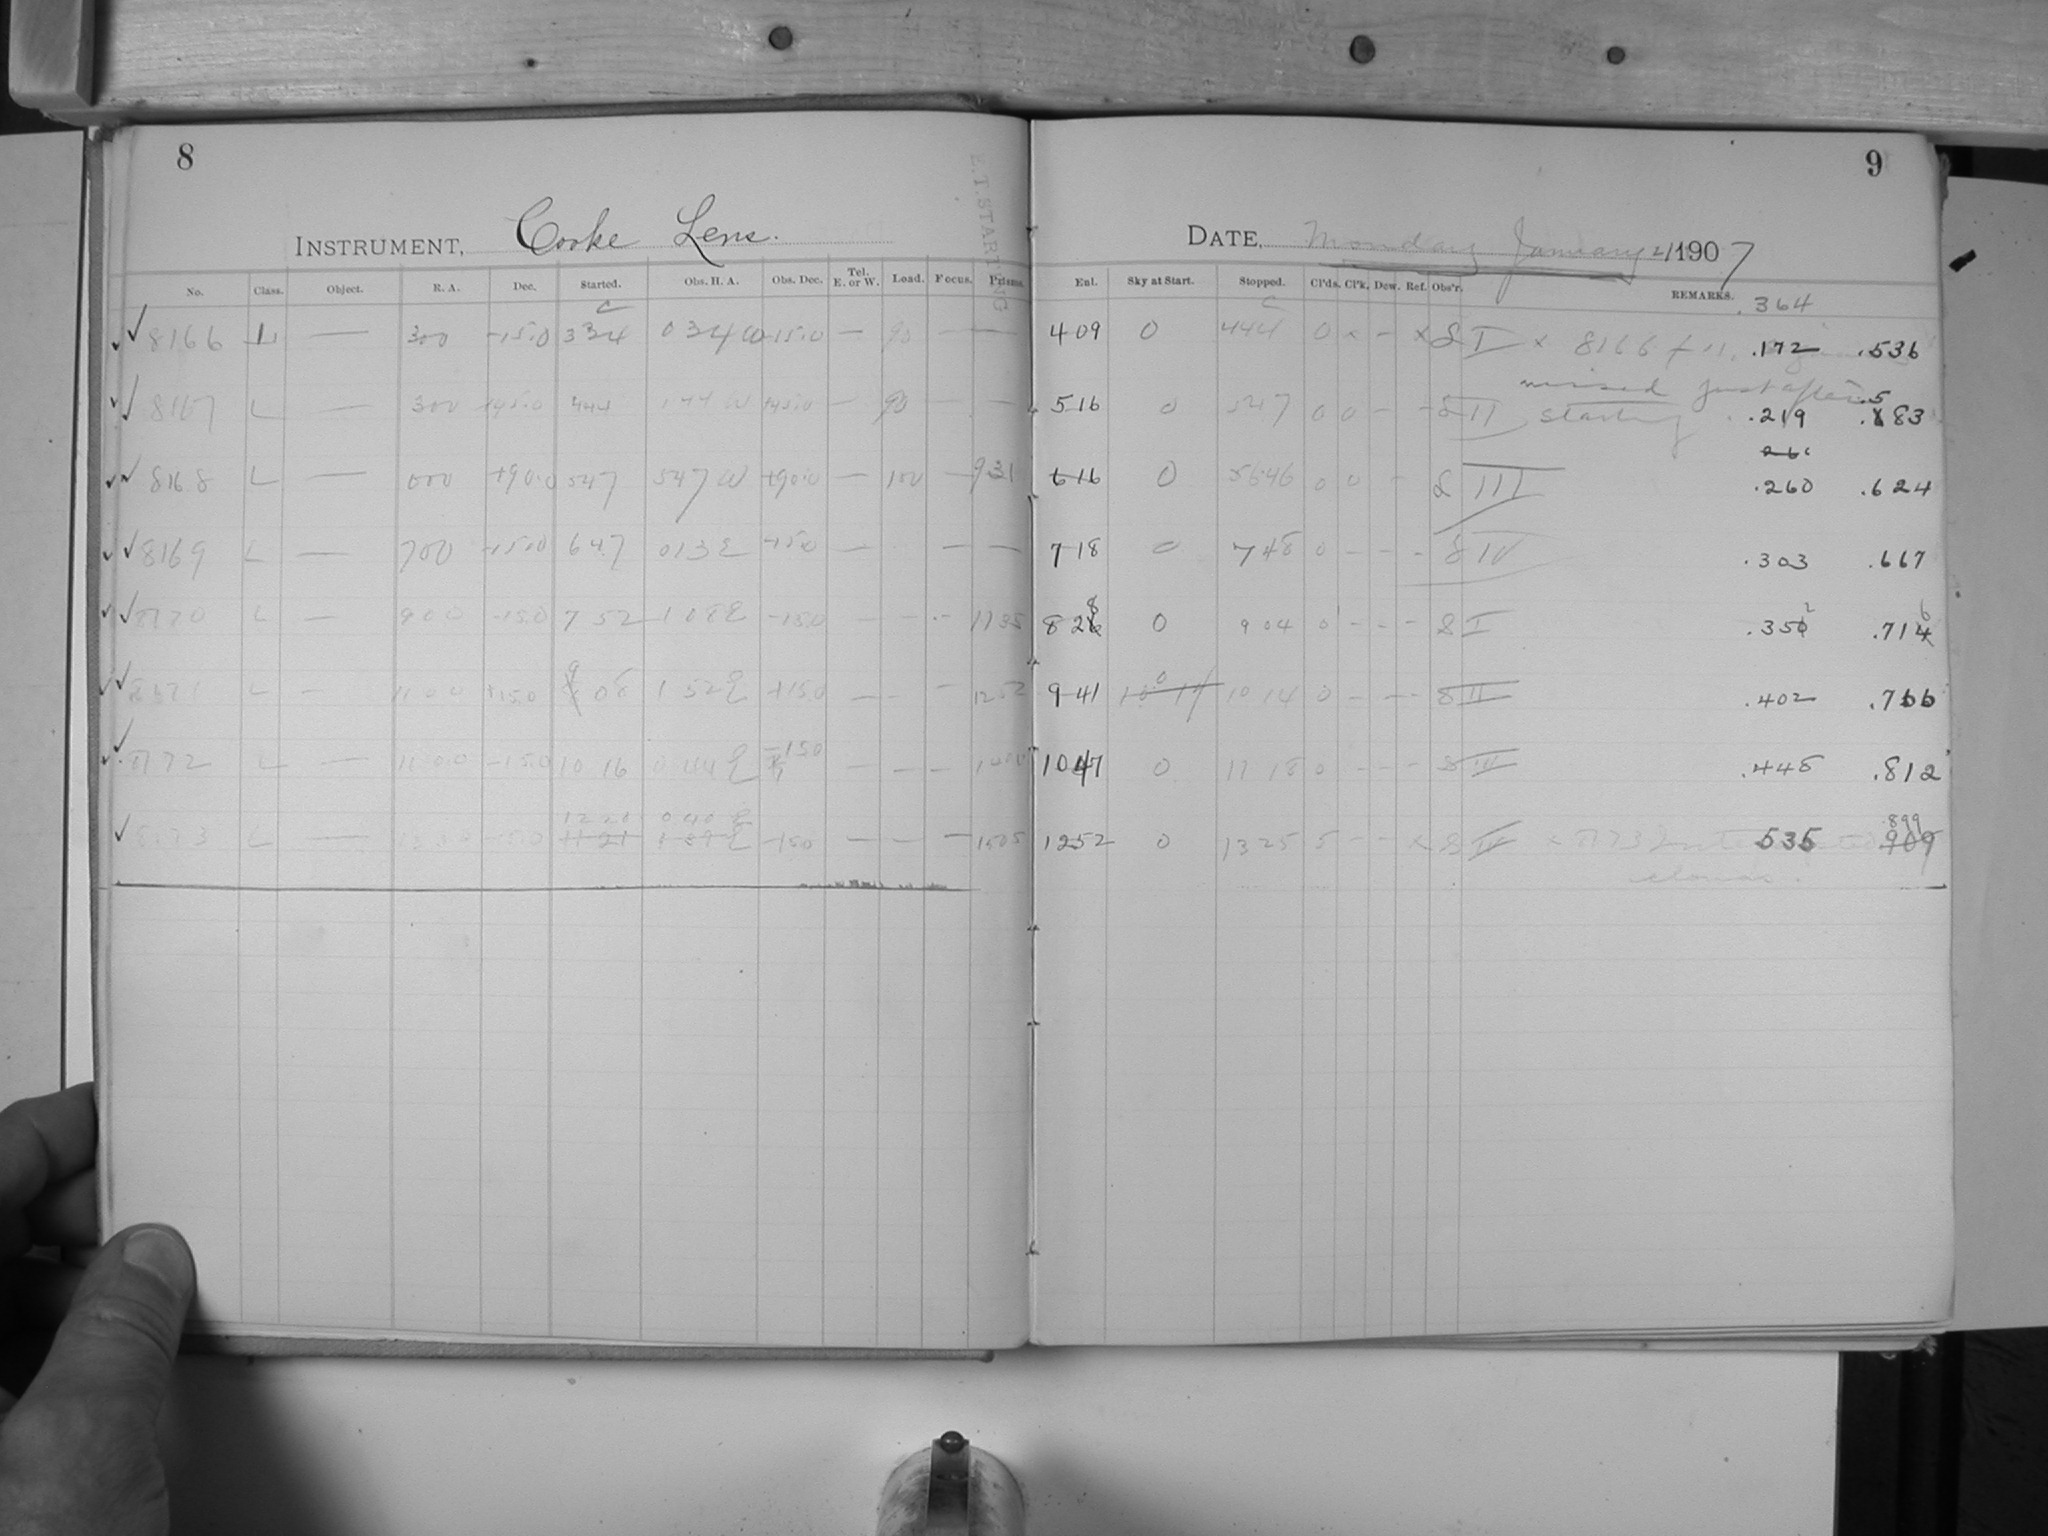 8
INSTRUMENT, Cooke Lens.
No. Class. Object. R. A. Dec. Started. Obs. H. A. Obs. Dec. Tel. E. or W. Load. Focus. Prisms.
E.T. STARTING
C
8166 L — 300 -15.0 334 034 W -15.0 — 90 — —
8167 L — 300 +45.0 444 144 W +45.0 — 90 — —
8168 L — 000 +90.0 547 547 W +90.0 — 100 — 931
8169 L — 700 -15.0 647 013 E -15.0 — — —
8170 L — 900 -15.0 7 52 1 08 E -15.0 — — — 1135
8171 L — 1100 +15.0 9 08 1 52 E +15.0 — — — 1252
8172 L — 1100 -15.0 10 16 0 44 E -15.0 — — —
1220 040 E
8173 L — -15.0 1121 E -15.0 — — — 1505
9
DATE, Monday January 21 1907
Enl. Sky at Start. Stopped. Cl'ds. Cl'k. Dew. Ref. Obs'r. REMARKS.
C .364
409 0 444 0 x - x S I x 8166 .172 .536
missed just after
516 0 547 0 0 - - S II starting .219 .583
616 0 646 0 0 - S III .260 .624
718 0 748 0 - - - S IV .303 .667
828 0 904 0 - - - S I .352 .716
941 0 1014 0 - - - S II .402 .766
1047 0 11 18 0 - - - S III .448 .812
.899
1252 0 1325 5 - - x S IV x 8173 535 909
clouds.